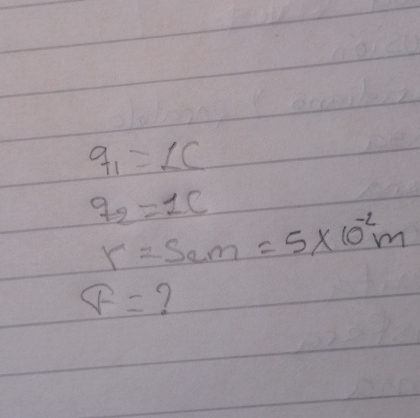 q₁ = 1C
q₂ = 1C
r = 5cm = 5 × 10⁻² m
F = ?